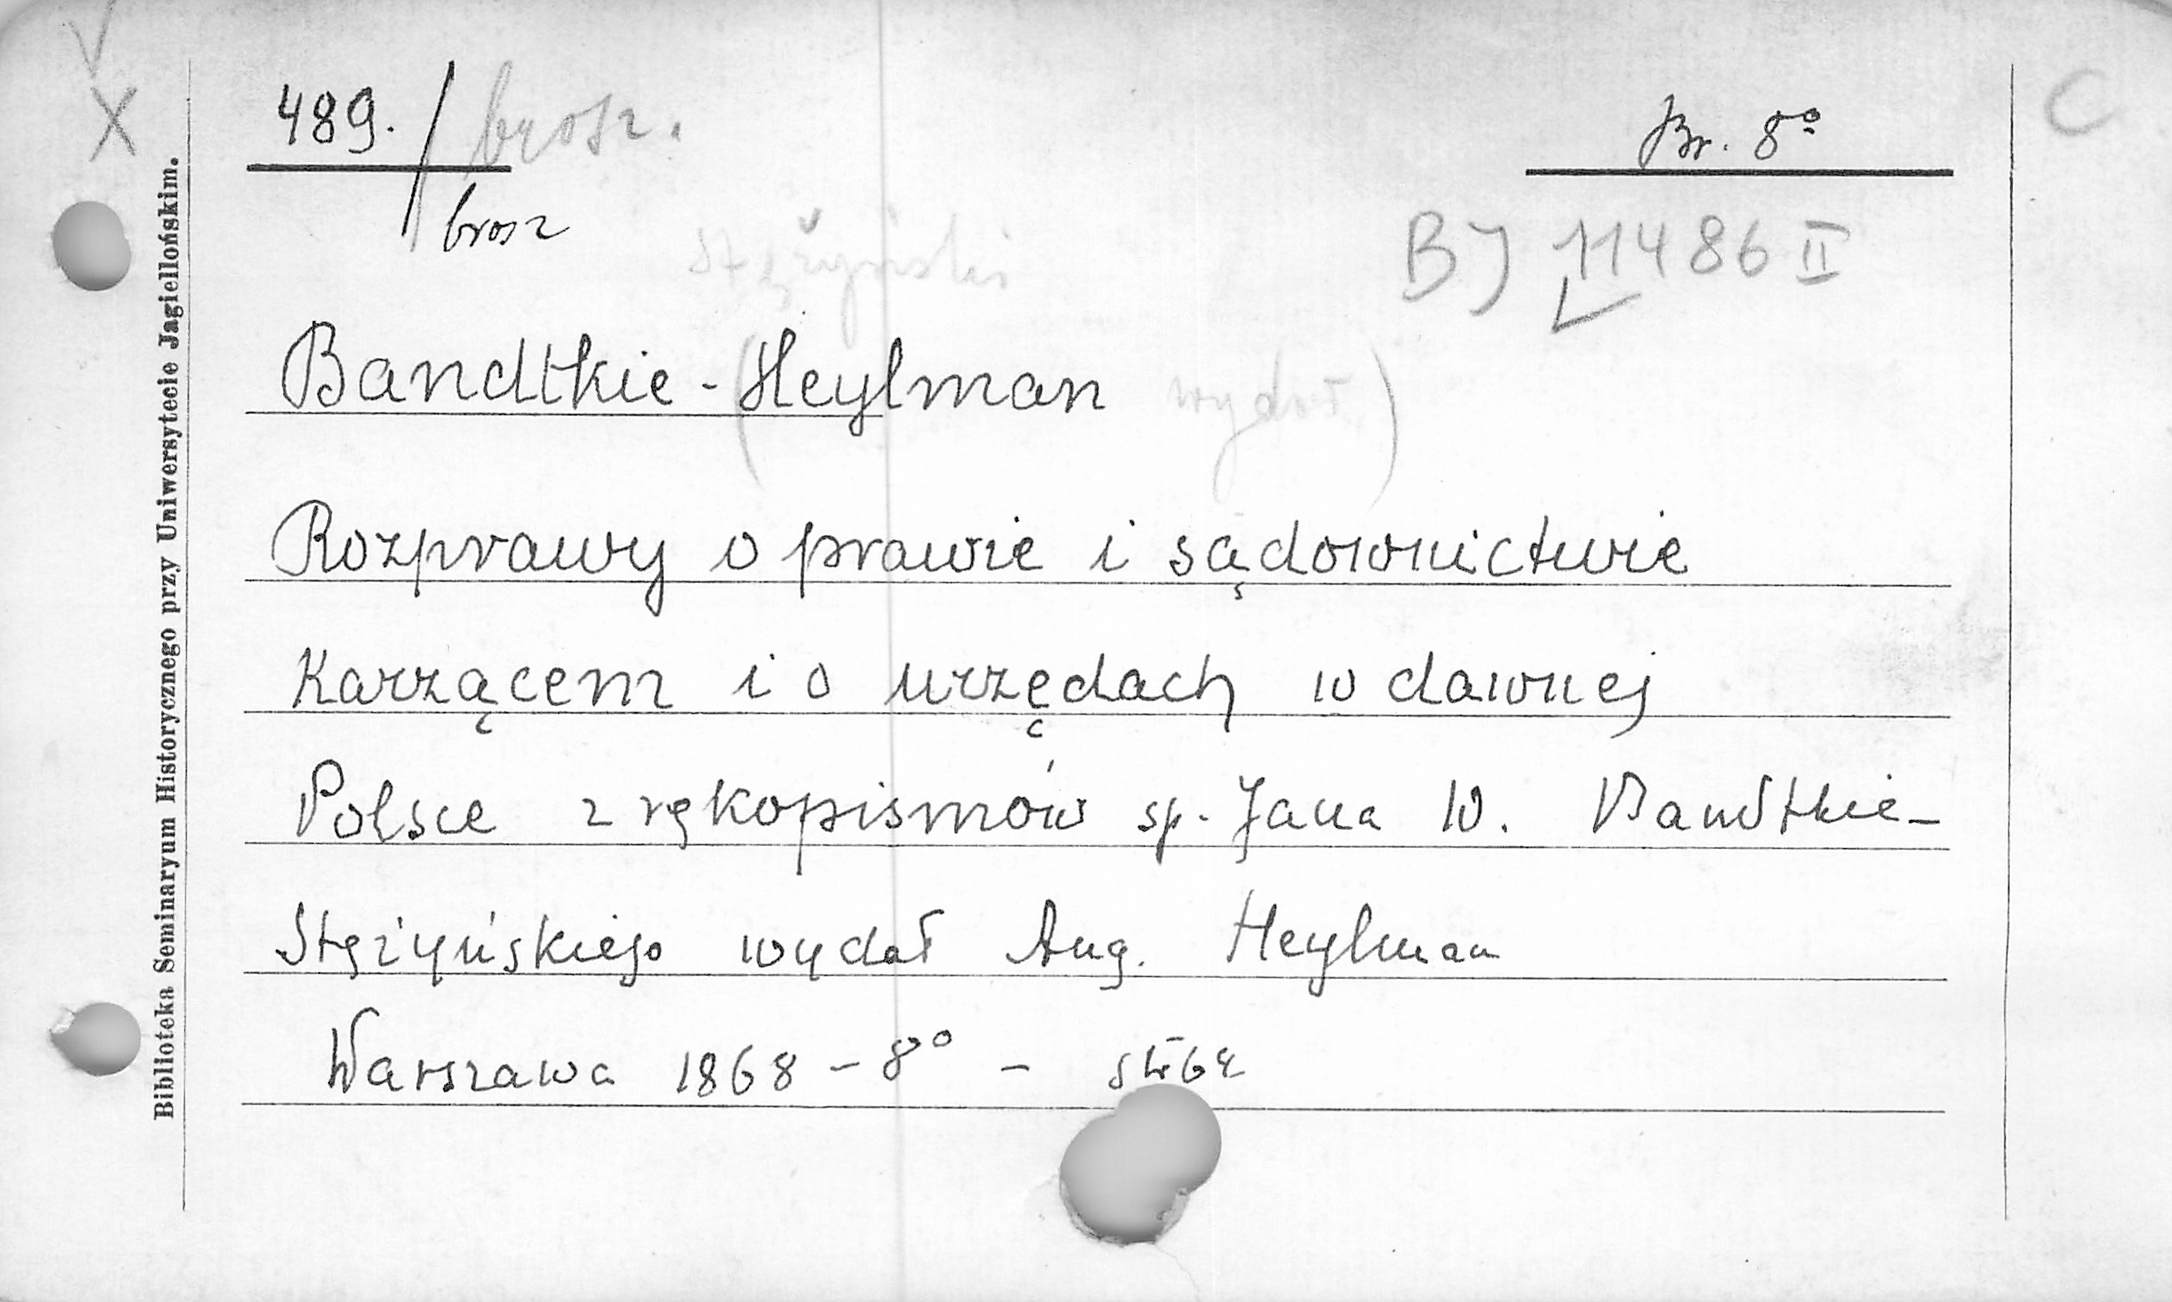 V
X
C
489. / brosz.
brosz
Br. 8°
BJ 11486 II
Stężyński
Bandtkie - (Heylman wydał)
Rozprawy o prawie i sądownictwie
Karzącem i o urzędach w dawnej
Polsce z rękopismów sp. Jana W. Bandtkie-
Stężyńskiego wydał Aug. Heylman
Warszawa 1868 - 8° -
Biblioteka Seminaryum Historycznego przy Uniwersytecie Jagiellońskim.